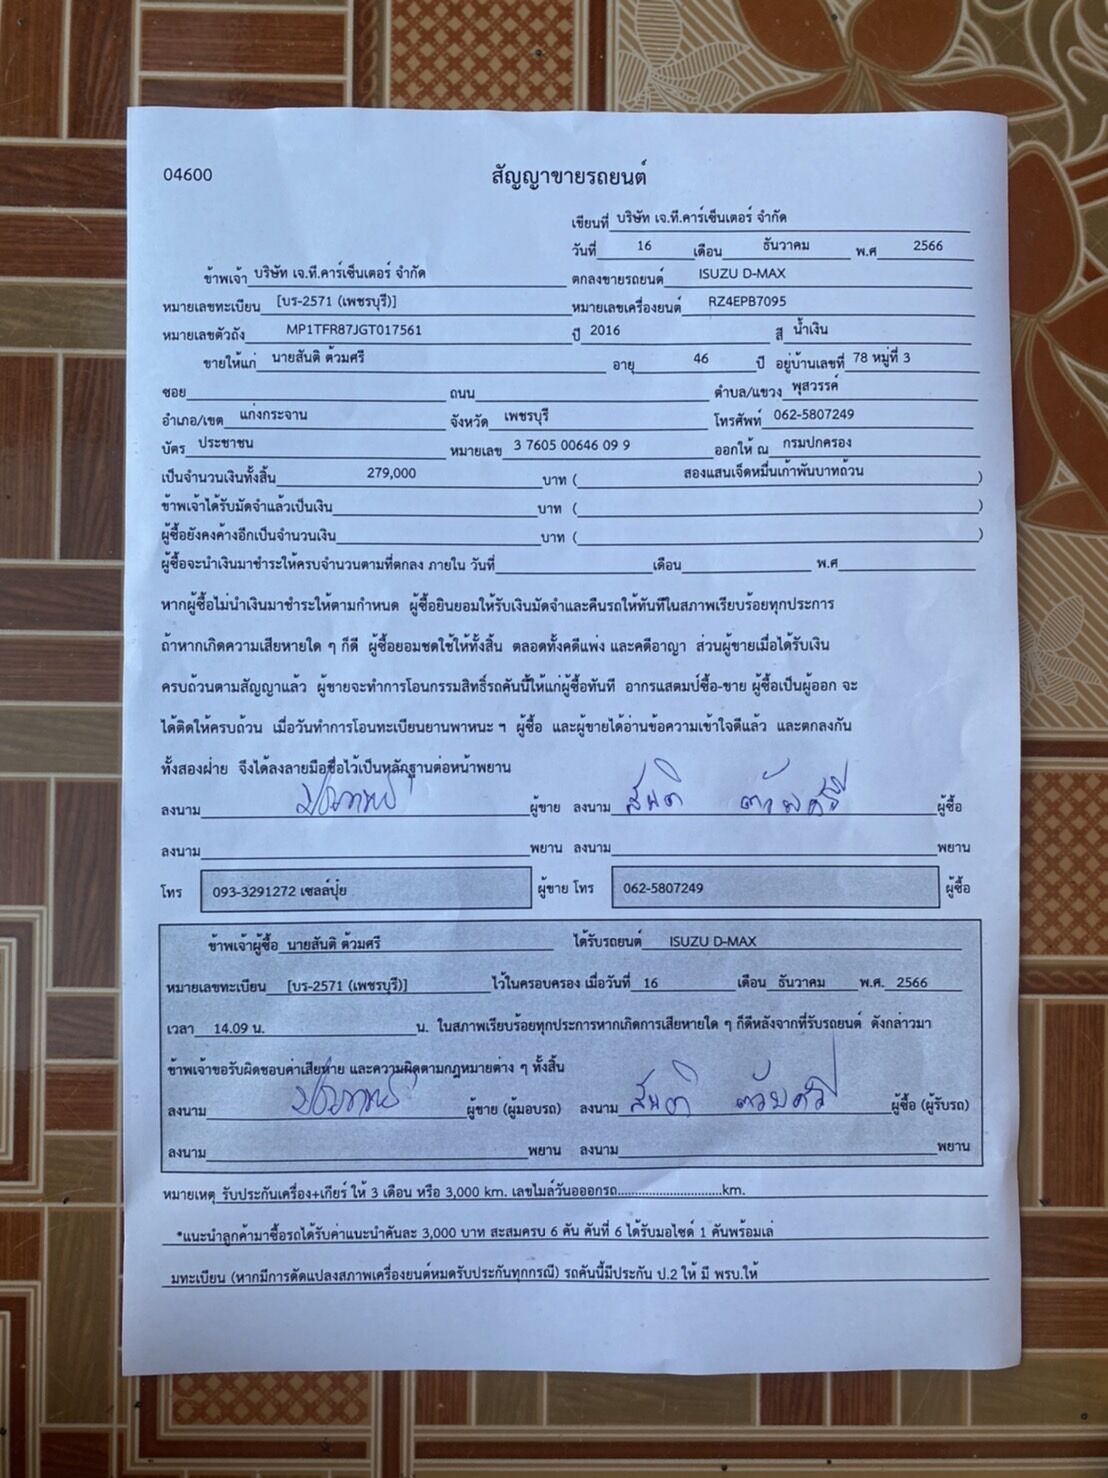 04600
สัญญาขายรถยนต์
เขียนที่ บริษัท เจ.ที.คาร์เซ็นเตอร์ จำกัด
วันที่ 16 เดือน ธันวาคม พ.ศ 2566
ข้าพเจ้า บริษัท เจ.ที.คาร์เซ็นเตอร์ จำกัด ตกลงขายรถยนต์ ISUZU D-MAX
หมายเลขทะเบียน [บร-2571 (เพชรบุรี)] หมายเลขเครื่องยนต์ RZ4EPB7095
หมายเลขตัวถัง MP1TFR87JGT017561 ปี 2016 สี น้ำเงิน
ขายให้แก่ นายสันติ ต้วมศรี อายุ 46 ปี อยู่บ้านเลขที่ 78 หมู่ที่ 3
ซอย ถนน ตำบล/แขวง พุสวรรค์
อำเภอ/เขต แก่งกระจาน จังหวัด เพชรบุรี โทรศัพท์ 062-5807249
บัตร ประชาชน หมายเลข 3 7605 00646 09 9 ออกให้ ณ กรมปกครอง
เป็นจำนวนเงินทั้งสิ้น 279,000 บาท ( สองแสนเจ็ดหมื่นเก้าพันบาทถ้วน )
ข้าพเจ้าได้รับมัดจำแล้วเป็นเงิน บาท ( )
ผู้ซื้อยังคงค้างอีกเป็นจำนวนเงิน บาท ( )
ผู้ซื้อจะนำเงินมาชำระให้ครบจำนวนตามที่ตกลง ภายใน วันที่ เดือน พ.ศ
หากผู้ซื้อไม่นำเงินมาชำระให้ตามกำหนด ผู้ซื้อยินยอมให้รับเงินมัดจำและคืนรถให้ทันทีในสภาพเรียบร้อยทุกประการ
ถ้าหากเกิดความเสียหายใด ๆ ก็ดี ผู้ซื้อยอมชดใช้ให้ทั้งสิ้น ตลอดทั้งคดีแพ่ง และคดีอาญา ส่วนผู้ขายเมื่อได้รับเงิน
ครบถ้วนตามสัญญาแล้ว ผู้ขายจะทำการโอนกรรมสิทธิ์รถคันนี้ให้แก่ผู้ซื้อทันที อากรแสตมป์ซื้อ-ขาย ผู้ซื้อเป็นผู้ออก จะ
ได้ติดให้ครบถ้วน เมื่อวันทำการโอนทะเบียนยานพาหนะ ฯ ผู้ซื้อ และผู้ขายได้อ่านข้อความเข้าใจดีแล้ว และตกลงกัน
ทั้งสองฝ่าย จึงได้ลงลายมือชื่อไว้เป็นหลักฐานต่อหน้าพยาน
ลงนาม ผู้ขาย ลงนาม สันติ ต้วมศรี ผู้ซื้อ
ลงนาม พยาน ลงนาม พยาน
โทร 093-3291272 เซลล์ปุ๋ย ผู้ขาย โทร 062-5807249 ผู้ซื้อ
ข้าพเจ้าผู้ซื้อ นายสันติ ต้วมศรี ได้รับรถยนต์ ISUZU D-MAX
หมายเลขทะเบียน [บร-2571 (เพชรบุรี)] ไว้ในครอบครอง เมื่อวันที่ 16 เดือน ธันวาคม พ.ศ. 2566
เวลา 14.09 น. น. ในสภาพเรียบร้อยทุกประการหากเกิดการเสียหายใด ๆ ก็ดีหลังจากที่รับรถยนต์ ดังกล่าวมา
ข้าพเจ้าขอรับผิดชอบค่าเสียหาย และความผิดตามกฎหมายต่าง ๆ ทั้งสิ้น
ลงนาม ผู้ขาย (ผู้มอบรถ) ลงนาม สันติ ต้วมศรี ผู้ซื้อ (ผู้รับรถ)
ลงนาม พยาน ลงนาม พยาน
หมายเหตุ รับประกันเครื่อง+เกียร์ ให้ 3 เดือน หรือ 3,000 km. เลขไมล์วันอออกรถ..............................km.
*แนะนำลูกค้ามาซื้อรถได้รับค่าแนะนำคันละ 3,000 บาท สะสมครบ 6 คัน คันที่ 6 ได้รับมอไซด์ 1 คันพร้อมเล่
มทะเบียน (หากมีการดัดแปลงสภาพเครื่องยนต์หมดรับประกันทุกกรณี) รถคันนี้มีประกัน ป.2 ให้ มี พรบ.ให้